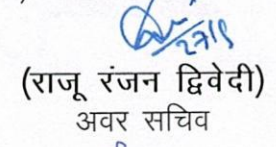 27/9
(राजू रंजन द्विवेदी)
अवर सचिव